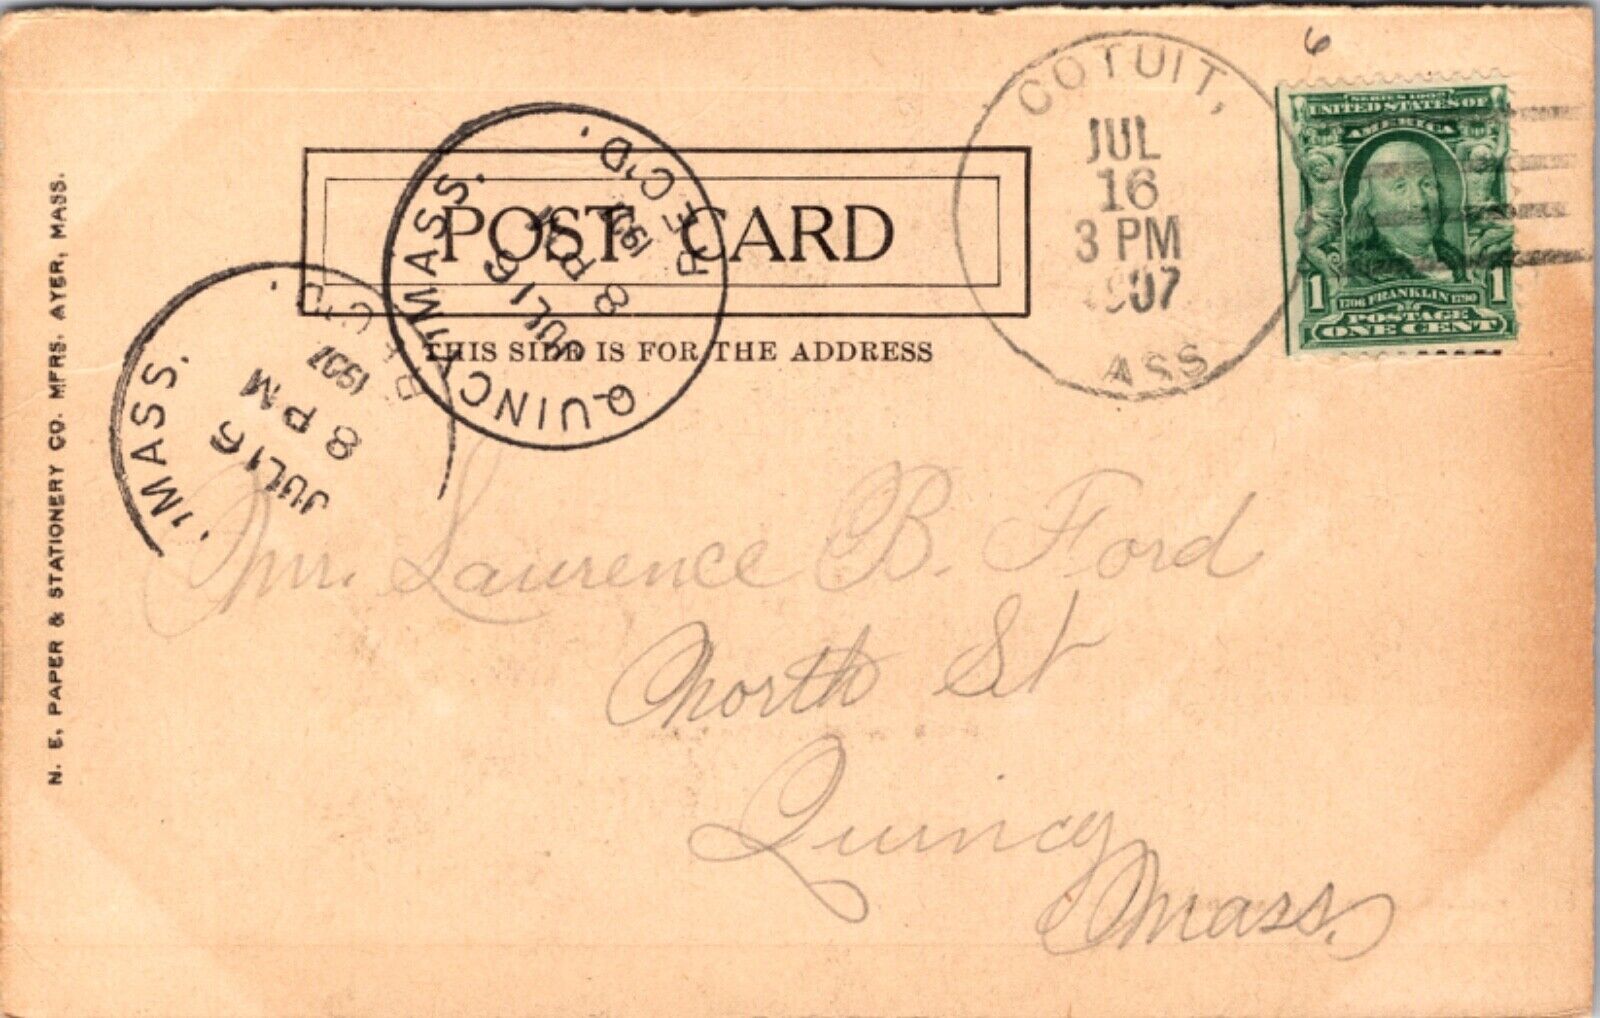 6
COTUIT,
JUL
16
3 PM
1907
ASS
SERIES 1902
UNITED STATES OF
AMERICA
1706 FRANKLIN 1790
1 1
POSTAGE
ONE CENT
POST CARD
THIS SIDE IS FOR THE ADDRESS
QUINCY, MASS.
JUL 16
8 PM
1907
REC'D.
MASS.
JUL 16
8 PM
1907
REC'D.
N. E. PAPER & STATIONERY CO. MFRS. AYER, MASS.
Mr. Laurence B. Ford
North St
Quincy
Mass.